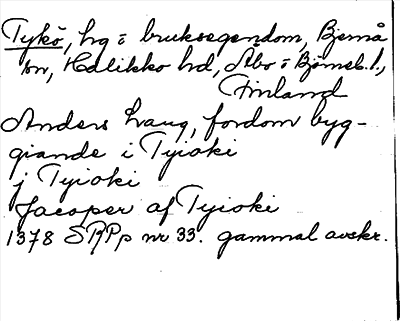 Tykö, hg o bruksegendom, Bjernå
sn, Halikko hd, Åbo o Björneb. l.,
Finland
Anders Lang, fordom byg-
giande i Tyioki
j Tyioki
Jacoper af Tyioki
1378 SRPp nr 33. gammal avskr.